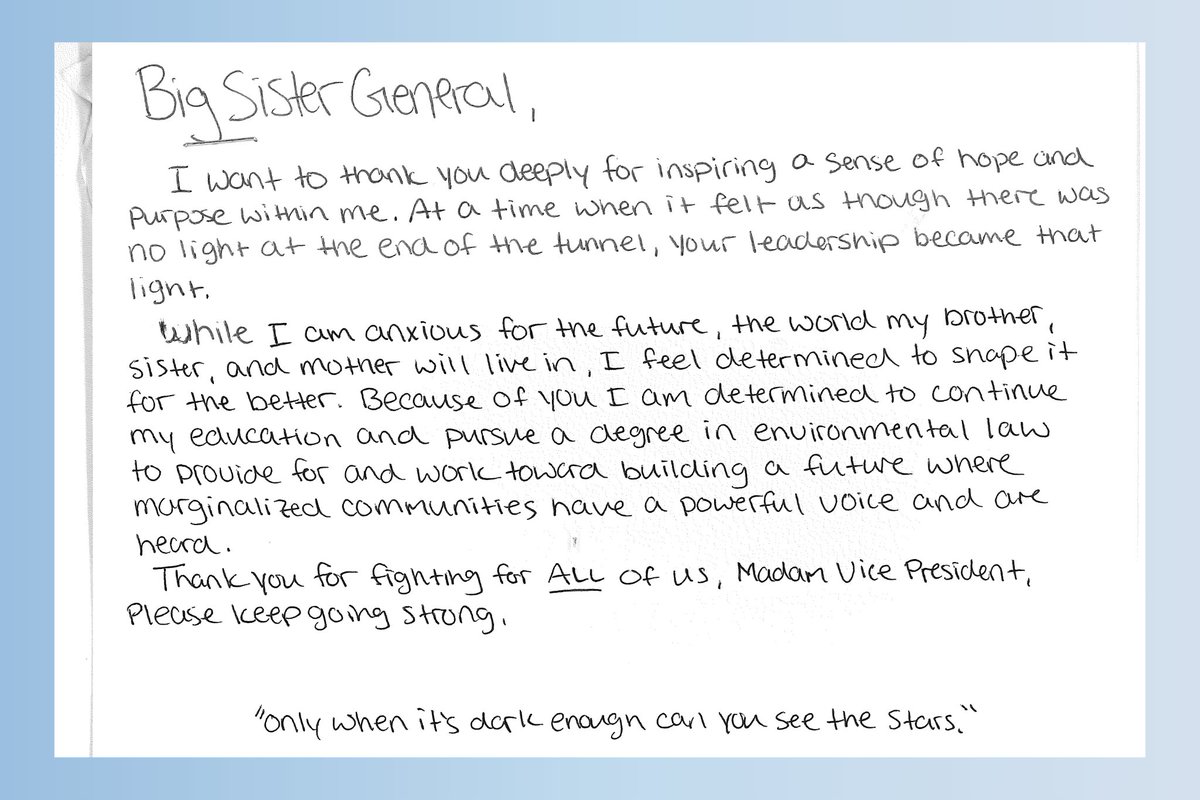 Big Sister General,
I want to thank you deeply for inspiring a sense of hope and
purpose within me. At a time when it felt as though there was
no light at the end of the tunnel, your leadership became that
light.
While I am anxious for the future, the world my brother,
sister, and mother will live in, I feel determined to shape it
for the better. Because of you I am determined to continue
my education and pursue a degree in environmental law
to provide for and work toward building a future where
marginalized communities have a powerful voice and are
heard.
Thank you for fighting for ALL of us, Madam Vice President.
Please keep going strong.
"Only when it's dark enough can you see the stars."